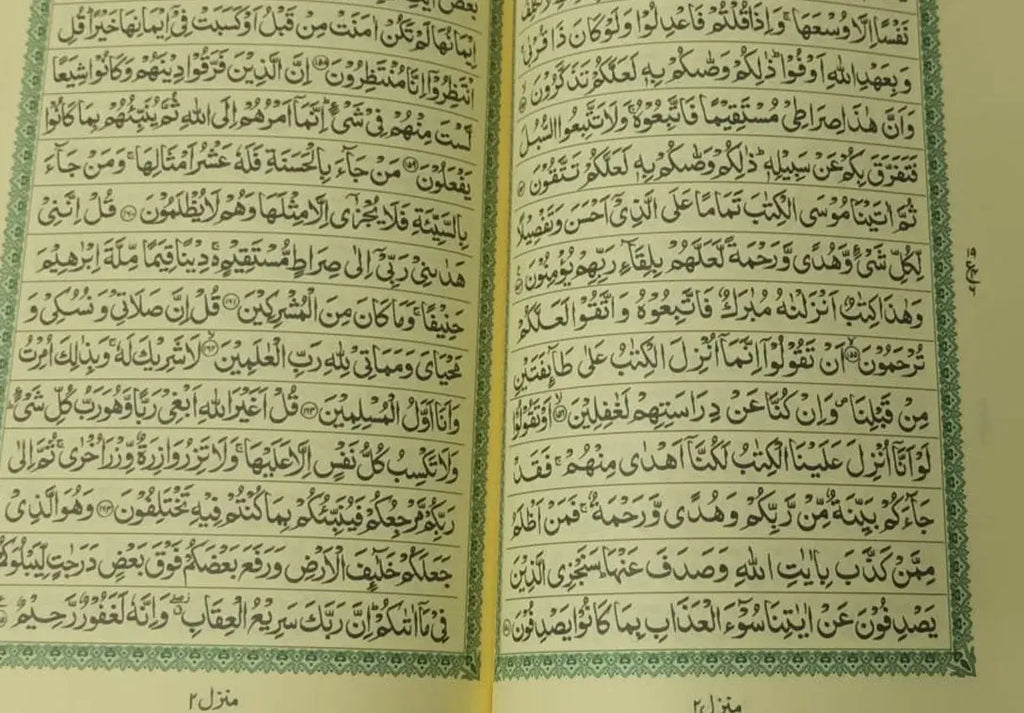 نَفْسًا اِلَّا وُسْعَهَا ۚ وَاِذَا قُلْتُمْ فَاعْدِلُوْا وَلَوْ كَانَ ذَا قُرْبٰى ۚ
وَبِعَهْدِ اللّٰهِ اَوْفُوْا ؕ ذٰلِكُمْ وَصّٰىكُمْ بِهٖ لَعَلَّكُمْ تَذَكَّرُوْنَ
وَاَنَّ هٰذَا صِرَاطِيْ مُسْتَقِيْمًا فَاتَّبِعُوْهُ ۚ وَلَا تَتَّبِعُوا السُّبُلَ
فَتَفَرَّقَ بِكُمْ عَنْ سَبِيْلِهٖ ؕ ذٰلِكُمْ وَصّٰىكُمْ بِهٖ لَعَلَّكُمْ تَتَّقُوْنَ
ثُمَّ اٰتَيْنَا مُوْسَى الْكِتٰبَ تَمَامًا عَلَى الَّذِيْٓ اَحْسَنَ وَتَفْصِيْلًا
لِّكُلِّ شَيْءٍ وَّهُدًى وَّرَحْمَةً لَّعَلَّهُمْ بِلِقَآءِ رَبِّهِمْ يُؤْمِنُوْنَ
وَهٰذَا كِتٰبٌ اَنْزَلْنٰهُ مُبٰرَكٌ فَاتَّبِعُوْهُ وَاتَّقُوْا لَعَلَّكُمْ
تُرْحَمُوْنَ ۝١٥٥ اَنْ تَقُوْلُوْٓا اِنَّمَآ اُنْزِلَ الْكِتٰبُ عَلٰى طَآئِفَتَيْنِ
مِنْ قَبْلِنَا ۪ وَاِنْ كُنَّا عَنْ دِرَاسَتِهِمْ لَغٰفِلِيْنَ ۝١٥٦ اَوْ تَقُوْلُوْا
لَوْ اَنَّآ اُنْزِلَ عَلَيْنَا الْكِتٰبُ لَكُنَّآ اَهْدٰى مِنْهُمْ ۚ فَقَدْ
جَآءَكُمْ بَيِّنَةٌ مِّنْ رَّبِّكُمْ وَهُدًى وَّرَحْمَةٌ ۚ فَمَنْ اَظْلَمُ
مِمَّنْ كَذَّبَ بِاٰيٰتِ اللّٰهِ وَصَدَفَ عَنْهَا ؕ سَنَجْزِى الَّذِيْنَ
يَصْدِفُوْنَ عَنْ اٰيٰتِنَا سُوْٓءَ الْعَذَابِ بِمَا كَانُوْا يَصْدِفُوْنَ
منزل ٢
اِيْمَانُهَا لَمْ تَكُنْ اٰمَنَتْ مِنْ قَبْلُ اَوْ كَسَبَتْ فِيْٓ اِيْمَانِهَا خَيْرًا ؕ قُلِ
انْتَظِرُوْٓا اِنَّا مُنْتَظِرُوْنَ ۝١٥٨ اِنَّ الَّذِيْنَ فَرَّقُوْا دِيْنَهُمْ وَكَانُوْا شِيَعًا
لَّسْتَ مِنْهُمْ فِيْ شَيْءٍ ؕ اِنَّمَآ اَمْرُهُمْ اِلَى اللّٰهِ ثُمَّ يُنَبِّئُهُمْ بِمَا كَانُوْا
يَفْعَلُوْنَ ۝١٥٩ مَنْ جَآءَ بِالْحَسَنَةِ فَلَهٗ عَشْرُ اَمْثَالِهَا ۚ وَمَنْ جَآءَ
بِالسَّيِّئَةِ فَلَا يُجْزٰٓى اِلَّا مِثْلَهَا وَهُمْ لَا يُظْلَمُوْنَ ۝١٦٠ قُلْ اِنَّنِيْ
هَدٰىنِيْ رَبِّيْٓ اِلٰى صِرَاطٍ مُّسْتَقِيْمٍ ۚ دِيْنًا قِيَمًا مِّلَّةَ اِبْرٰهِيْمَ
حَنِيْفًا ۚ وَمَا كَانَ مِنَ الْمُشْرِكِيْنَ ۝١٦١ قُلْ اِنَّ صَلَاتِيْ وَنُسُكِيْ وَ
مَحْيَايَ وَمَمَاتِيْ لِلّٰهِ رَبِّ الْعٰلَمِيْنَ ۝١٦٢ لَا شَرِيْكَ لَهٗ ۚ وَبِذٰلِكَ اُمِرْتُ
وَاَنَا اَوَّلُ الْمُسْلِمِيْنَ ۝١٦٣ قُلْ اَغَيْرَ اللّٰهِ اَبْغِيْ رَبًّا وَّهُوَ رَبُّ كُلِّ شَيْءٍ ؕ
وَلَا تَكْسِبُ كُلُّ نَفْسٍ اِلَّا عَلَيْهَا ۚ وَلَا تَزِرُ وَازِرَةٌ وِّزْرَ اُخْرٰى ۚ ثُمَّ اِلٰى
رَبِّكُمْ مَّرْجِعُكُمْ فَيُنَبِّئُكُمْ بِمَا كُنْتُمْ فِيْهِ تَخْتَلِفُوْنَ ۝١٦٤ وَهُوَ الَّذِيْ
جَعَلَكُمْ خَلٰٓئِفَ الْاَرْضِ وَرَفَعَ بَعْضَكُمْ فَوْقَ بَعْضٍ دَرَجٰتٍ لِّيَبْلُوَكُمْ
فِيْ مَآ اٰتٰىكُمْ ؕ اِنَّ رَبَّكَ سَرِيْعُ الْعِقَابِ ۖ وَاِنَّهٗ لَغَفُوْرٌ رَّحِيْمٌ
منزل ٢